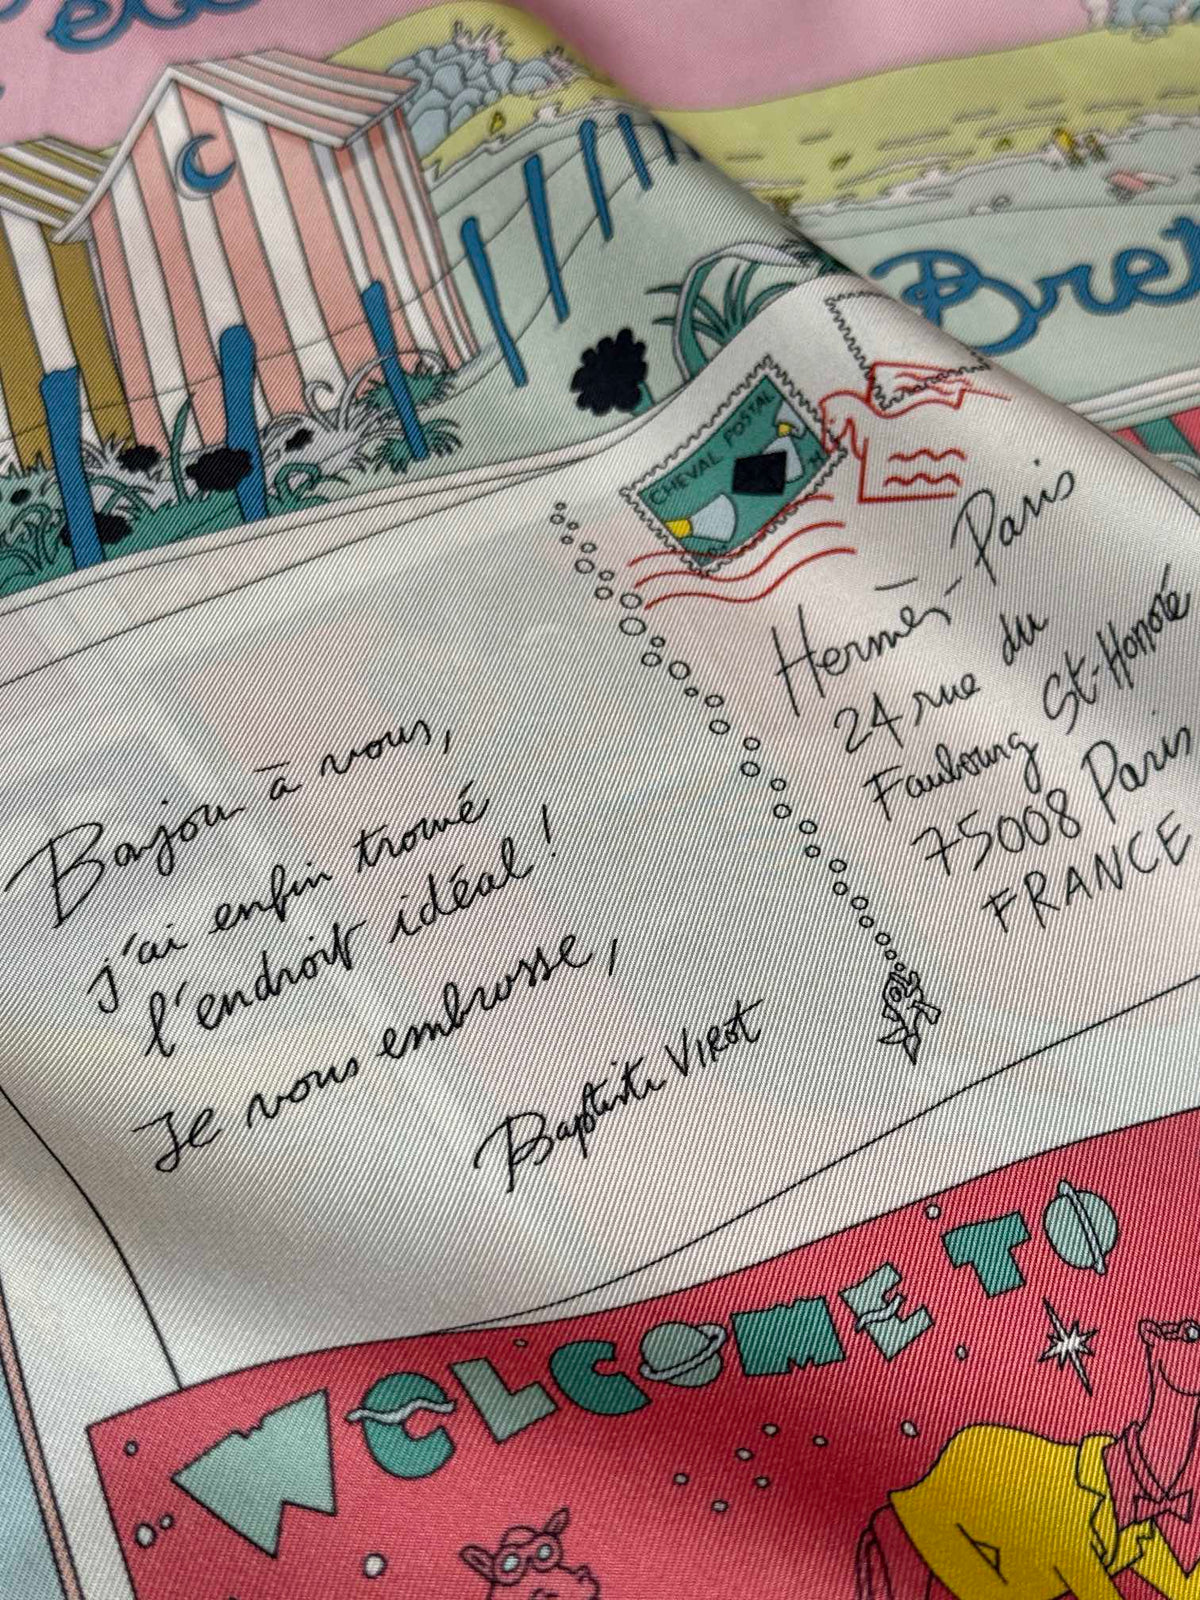 Bret
CHEVAL POSTAL
Hermès-Paris
24 rue du
Faubourg St-Honoré
75008 Paris
FRANCE
Bonjour à vous,
j'ai enfin trouvé
l'endroit idéal!
Je vous embrasse,
Baptiste VIROT
WELCOME TO